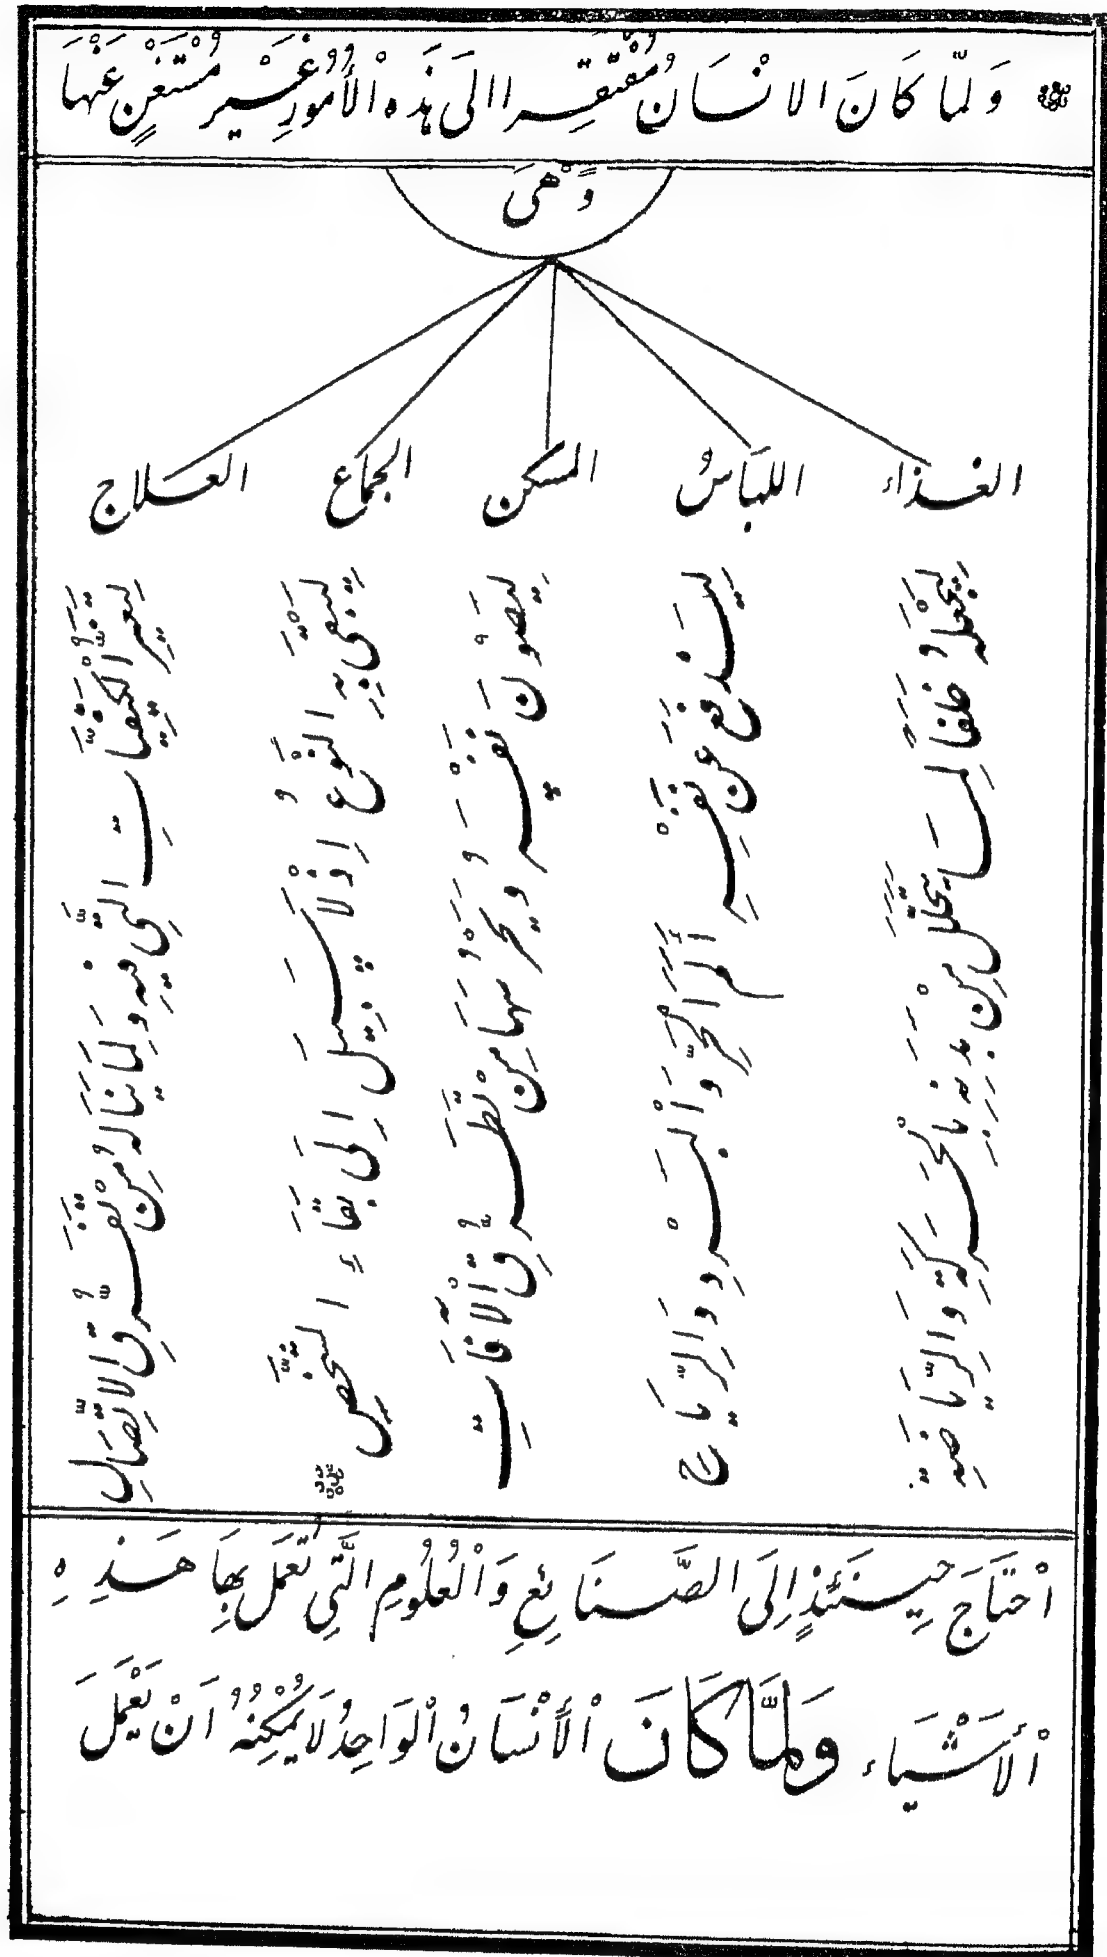 وَلَمَّا كَانَ الانْسَانُ مُفْتَقِرا الَى هَذِهِ اْلأُمُورِ غَيْرَ مُسْتَغْنٍ عَنْهَا
وَهْىَ
الغذَاء
اللبَاسُ
المسكن
الجمَاع
العلَاج
لِيَجْعَلَهُ خَلَفًا لِمَا يَتَحَلَّل مِنْ بَدَنِهِ بِالْحَرَكَةِ وَالرِّيَاضَةِ
لِيَنْدَفِعَ عَنْ نَفْسِهِ أَلَمَ الْحَرِّ وَاْلبَرْدِ وَالرِّيَاح
لِيَصُوْنَ نَفْسَهُ وَيَحْرُسَهَا مِنْ تَطَرُّقِ اْلآفَاتِ
لِيَبْقَى بِهِ النَوْعُ اِذْ لَا سَبِيلَ اِلَى بَقَاءِ الشَّخْصِ
لِتَغَيُّرِ الْكَيْفِيَّاتِ الَّتِى فِيهِ وَلِمَا يَنَالَهُ مِنْ تَفَرُّقِ الاِتِّصَالِ
اْحْتَاجَ حِينَئِذٍ اِلَى الصَّنَائِعِ وَاْلعُلُومِ الَّتِى تُعْمَلَ بِهَا هَذِهِ
اْلأَشْيَاء وَلَمَّا كَانَ اْلأَنْسَانُ اْلوَاحِدُ لَا يُمْكِنُهُ اَنْ يَعْمَلَ